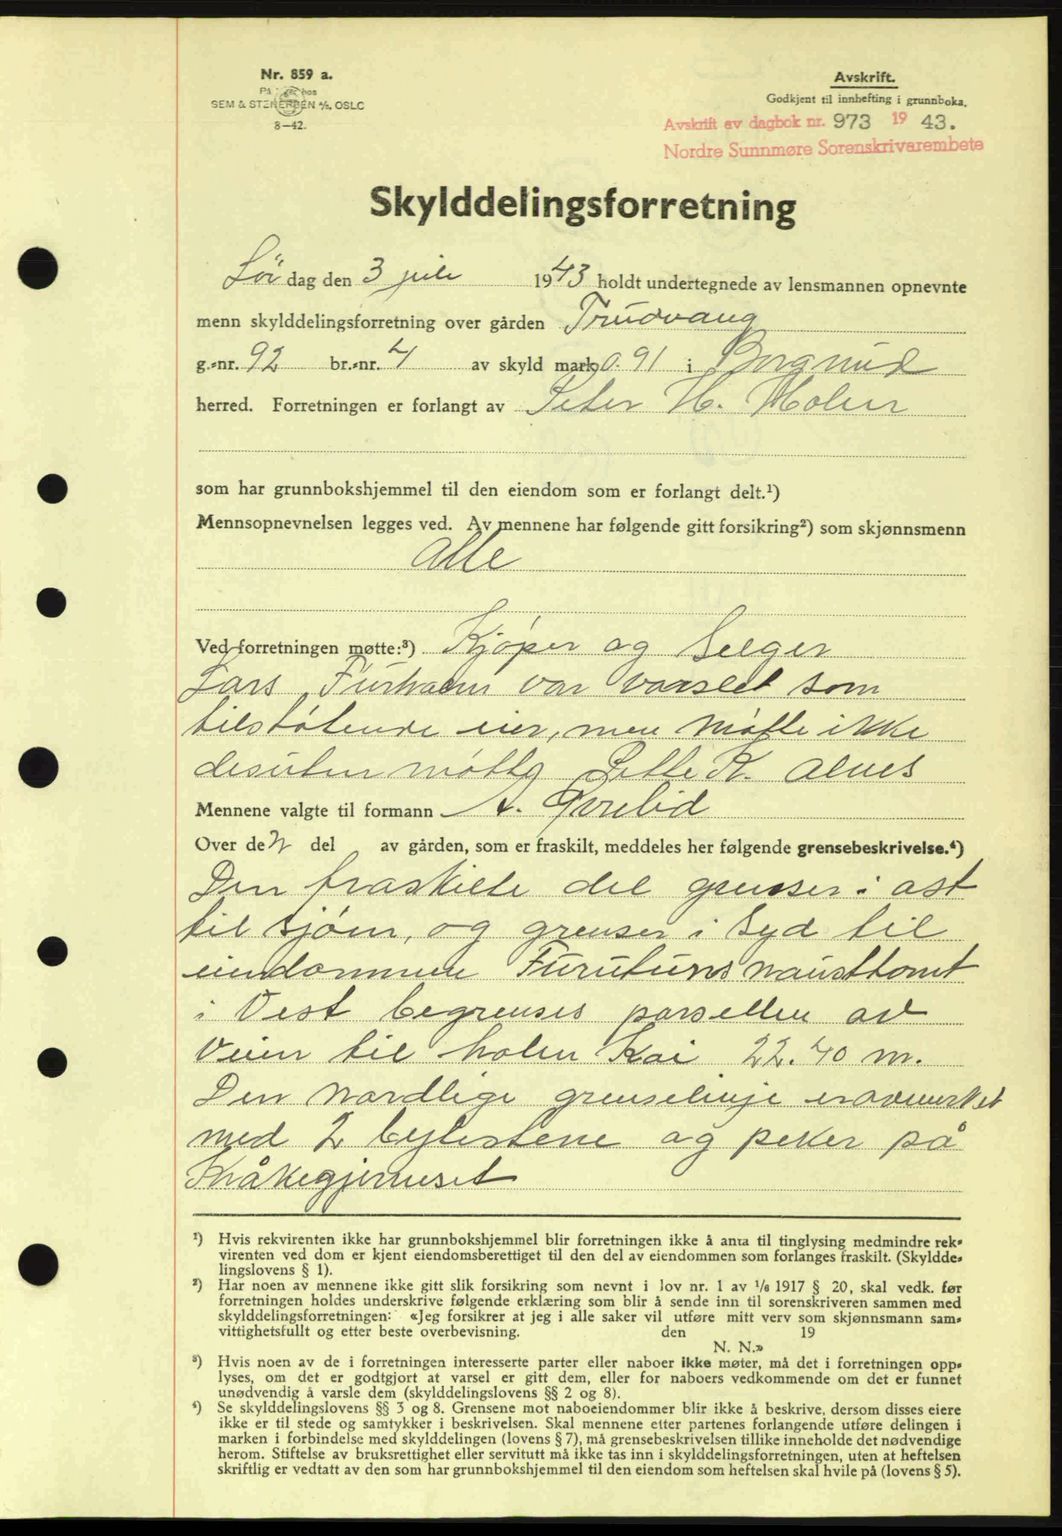 Nr. 859 a.
På hos
SEM & STENERSEN A/S, OSLO
8—42.
Avskrift.
Godkjent til innhefting i grunnboka.
Avskrift av dagbok nr. 973 19 43.
Nordre Sunnmøre Sorenskrivarembete
Skylddelingsforretning
Lör dag den 3 juli 1943 holdt undertegnede av lensmannen opnevnte
menn skylddelingsforretning over gården Trudvang
g.-nr. 92 br.-nr. 4 av skyld mark 0.91 i Borgund
herred. Forretningen er forlangt av Peter H. Holen
som har grunnbokshjemmel til den eiendom som er forlangt delt.¹)
Mennsopnevnelsen legges ved. Av mennene har følgende gitt forsikring²) som skjønnsmenn
Alle
Ved forretningen møtte:³) Kjøper og Selger
Lars var varslet som
tilstøtende eier, men møtte ikke
desuten møtte K. Alnes
Mennene valgte til formann A.
Over den del av gården, som er fraskilt, meddeles her følgende grensebeskrivelse.⁴)
Den fraskilte del grenser i ost
til sjøen, og grenser i Syd til
eiendommen Furutuns nausttomt
i Vest begrenses parsellen av
Veien til holen Kai 22.40 m.
Den nordlige grenselinje er avmerket
med 2 bytestene og peker på
Kråkegjerneset
¹) Hvis rekvirenten ikke har grunnbokshjemmel blir forretningen ikke å anta til tinglysing medmindre rek-
virenten ved dom er kjent eiendomsberettiget til den del av eiendommen som forlanges fraskilt. (Skyldde-
lingslovens § 1).
²) Har noen av mennene ikke gitt slik forsikring som nevnt i lov nr. 1 av 1/6 1917 § 20, skal vedk. før
forretningen holdes underskrive følgende erklæring som blir å sende inn til sorenskriveren sammen med
skylddelingsforretningen: «Jeg forsikrer at jeg i alle saker vil utføre mitt verv som skjønnsmann sam-
vittighetsfullt og etter beste overbevisning. den 19
N. N.»
³) Hvis noen av de i forretningen interesserte parter eller naboer ikke møter, må det i forretningen opp-
lyses, om det er godtgjort at varsel er gitt dem, eller for naboers vedkommende om det er funnet
unødvendig å varsle dem (skylddelingslovens §§ 2 og 8).
⁴) Se skylddelingslovens §§ 3 og 8. Grensene mot naboeiendommer blir ikke å beskrive, dersom disses eiere
ikke er til stede og samtykker i beskrivelsen. Skal mennene etter partenes forlangende utføre delingen i
marken i forbindelse med skylddelingen (lovens § 7), må grensebeskrivelsen tillike inneholde det nødvendige
herom. Stiftelse av bruksrettighet eller servitutt må ikke tas inn i skylddelingsforretningen, uten at heftelsen
skriftlig er vedtatt av den som har grunnbokshjemmel til den eiendom som heftelsen skal hvile på (lovens § 5).